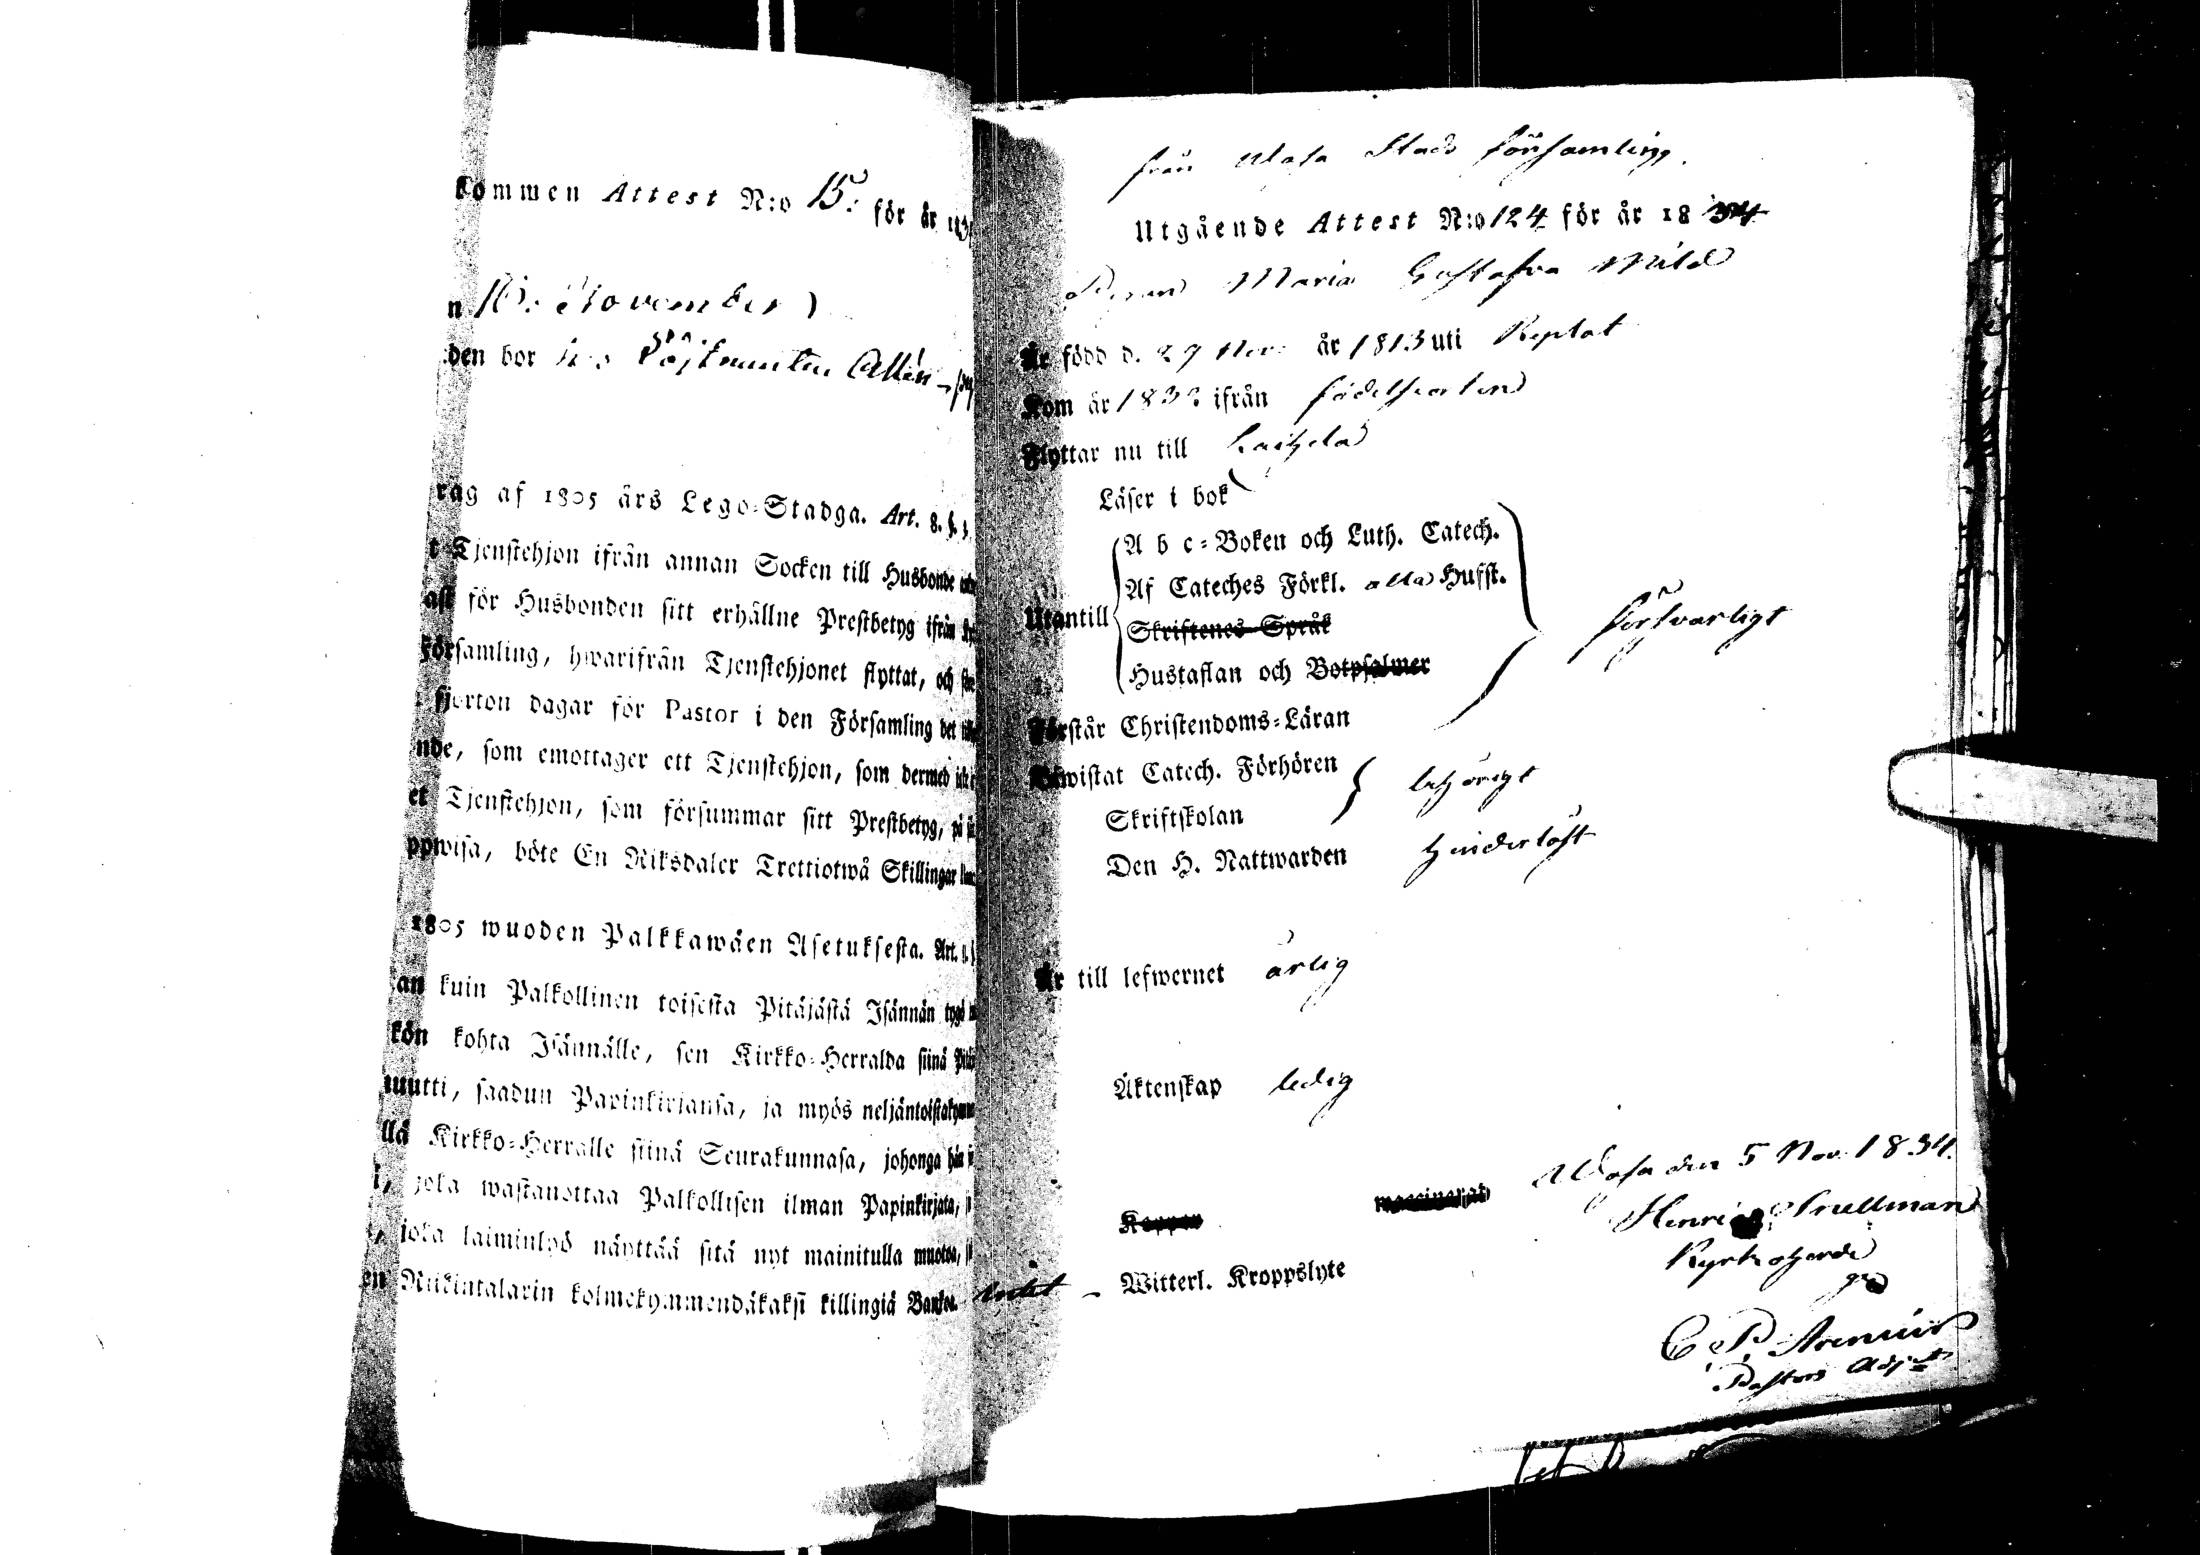 kommen Attest N:o 15. för år 183
n 16. November
den bor Löjtnanten Allén
rag af 1805 års Lego-Stadga. Art. 8. §.
t Tjenstehjon ifrån annan Socken till Husbonde
ast för Husbonden sitt erhållne Prestbetyg ifrån
Församling, hwarifrån Tjenstehjonet flyttat, och
fjorton dagar för Pastor i den Församling det
nde, som emottager ett Tjenstehjon, som dermed
et Tjenstehjon, som försummar sitt Prestbetyg, på
ppwisa, böte En Riksdaler Trettiotwå Skillingar
1805 wuoden Palkkawäen Asetuksesta. Art.
an kuin Palkollinen toisesta Pitäjästä Isännän tygö
kön kohta Isännälle, sen Kirkko-Herralda siinä
muutti, saadun Papinkirjansa, ja myös neljäntoistakymm
llä Kirkko-Herralle siinä Seurakunnasa, johonga hän
i, joka wastanottaa Palkollisen ilman Papinkirjata,
, joka laiminlyö näyttää sitä nyt mainitulla muotoa,
en Riikintalarin kolmekymmendäkaksi killingiä Banko.
från Wasa Stads församling.
Utgående Attest N:o 124 för år 1834
Pigan Maria Gustafva Mild
Är född d. 29 Nov: år 1813 uti Replot
Kom år 183 ifrån födelseorten
Flyttar nu till Laihela
Läser i bok
A b c-Boken och Luth. Catech.
Af Cateches Förkl. alla Husst.
Utantill Skriftenes Språk försvarligt
Hustaflan och Botpsalmer
Förstår Christendoms-Läran
Bewistat Catech. Förhören behörigt
Skriftskolan
Den H. Nattwarden hinderlöst
Är till lefwernet ärlig
Äktenskap ledig
Wasa den 5 Nov. 1834.
Koppor
Kyrkoherde
intet - Witterl. Kroppslyte
C. P. Arenius
Pastors Adj:t